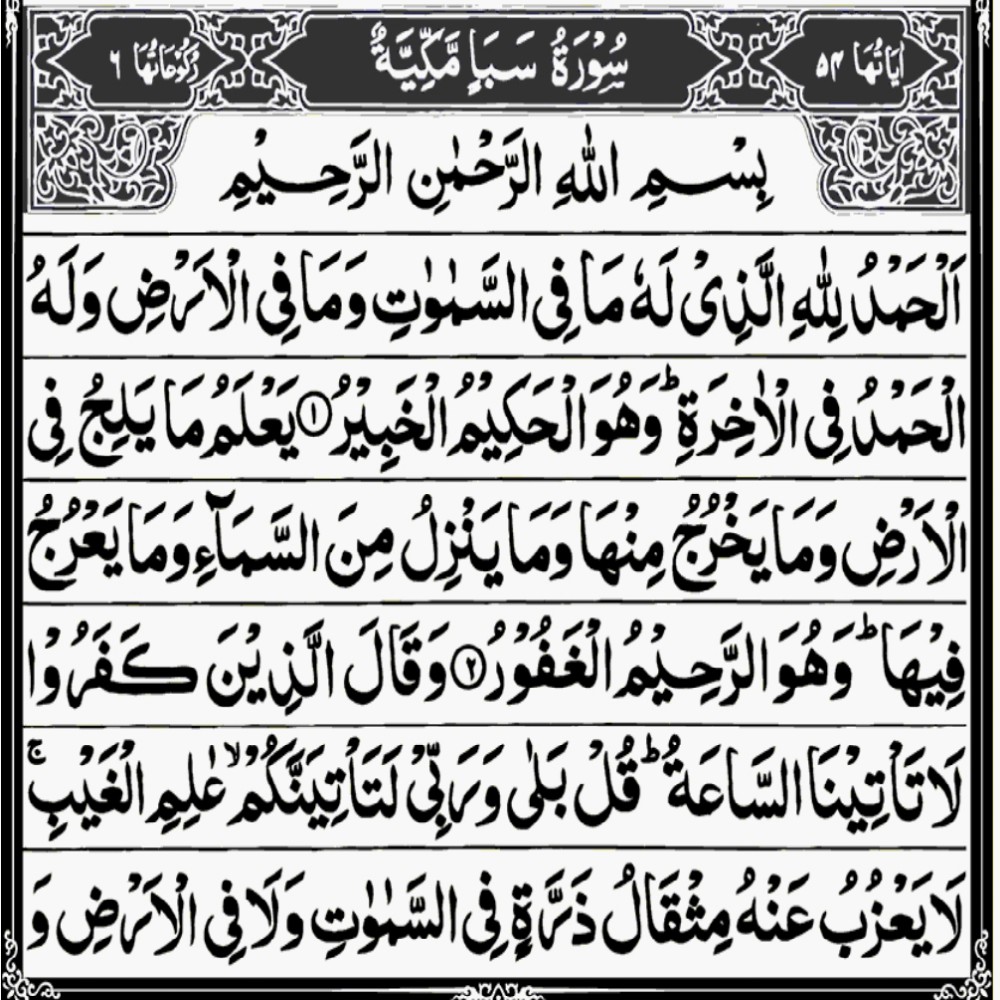 اٰیَاتُهَا ۵۴ سُوْرَةُ سَبَاٍ مَّكِّیَّةٌ رُكُوْعَاتُهَا ۶
بِسْمِ اللهِ الرَّحْمٰنِ الرَّحِیْمِ
اَلْحَمْدُ لِلّٰهِ الَّذِیْ لَهٗ مَا فِی السَّمٰوٰتِ وَمَا فِی الْاَرْضِ وَلَهُ
الْحَمْدُ فِی الْاٰخِرَةِ ؕ وَهُوَ الْحَكِیْمُ الْخَبِیْرُ ۱ یَعْلَمُ مَا یَلِجُ فِی
الْاَرْضِ وَمَا یَخْرُجُ مِنْهَا وَمَا یَنْزِلُ مِنَ السَّمَآءِ وَمَا یَعْرُجُ
فِیْهَا ؕ وَهُوَ الرَّحِیْمُ الْغَفُوْرُ ۲ وَقَالَ الَّذِیْنَ كَفَرُوْا
لَا تَاْتِیْنَا السَّاعَةُ ؕ قُلْ بَلٰی وَرَبِّیْ لَتَاْتِیَنَّكُمْ ۙ عٰلِمِ الْغَیْبِ ۚ
لَا یَعْزُبُ عَنْهُ مِثْقَالُ ذَرَّةٍ فِی السَّمٰوٰتِ وَلَا فِی الْاَرْضِ وَ